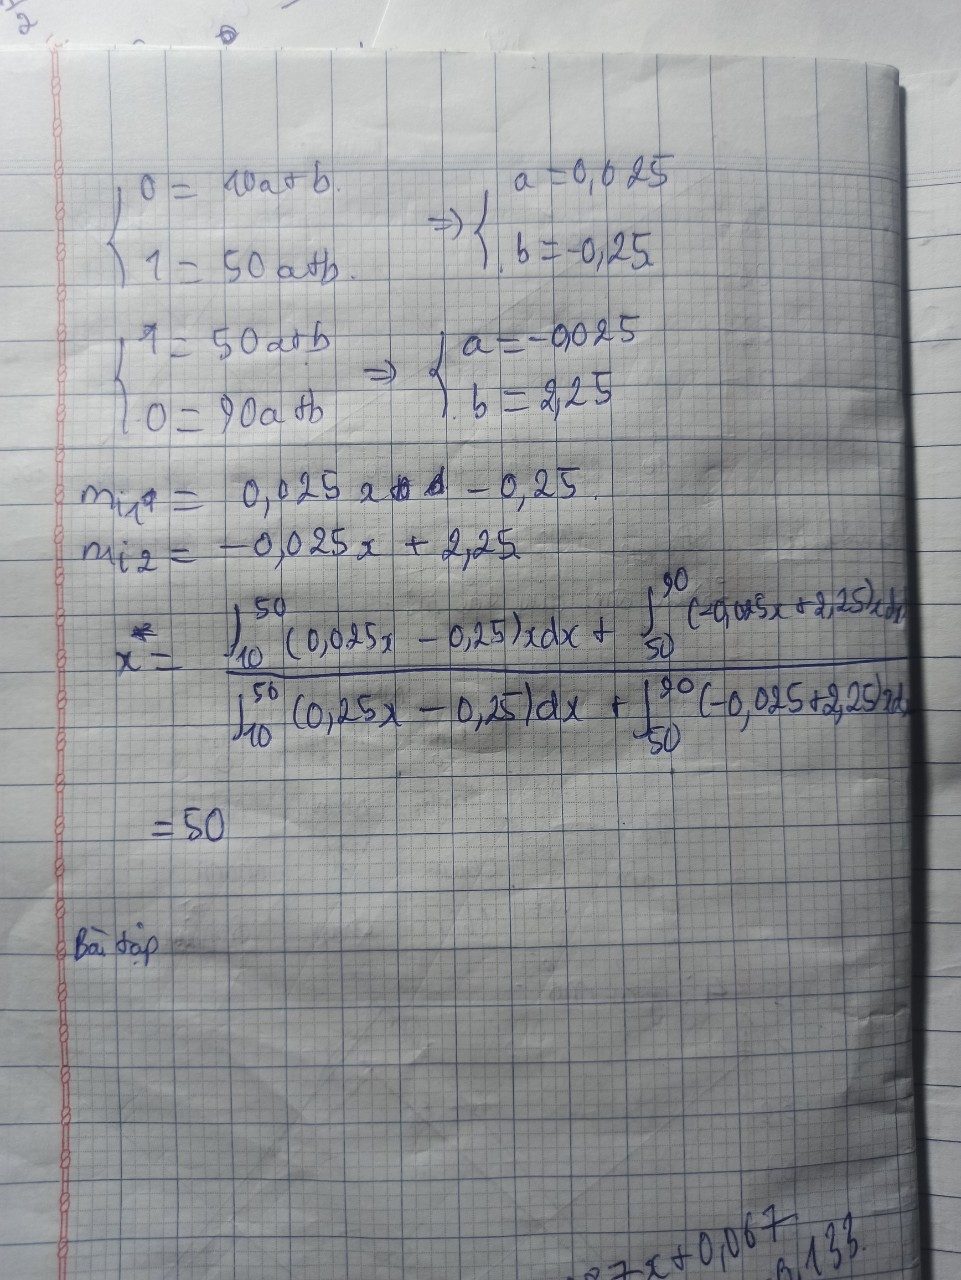 2
0 = 10a+b.
1 = 50a+b.
=> a = 0,025
b = -0,25
1 = 50a+b
0 = 90a+b
=> a = -0,025
b = 2,25
mi1 = 0,025x - 0,25.
mi2 = -0,025x + 2,25
x* = ∫₁₀⁵⁰ (0,025x - 0,25)xdx + ∫₅₀⁹⁰ (-0,025x+2,25)xdx
∫₁₀⁵⁰ (0,25x - 0,25)dx + ∫₅₀⁹⁰ (-0,025+2,25)xd
= 50
Bài tập
7x+0,067
,133.